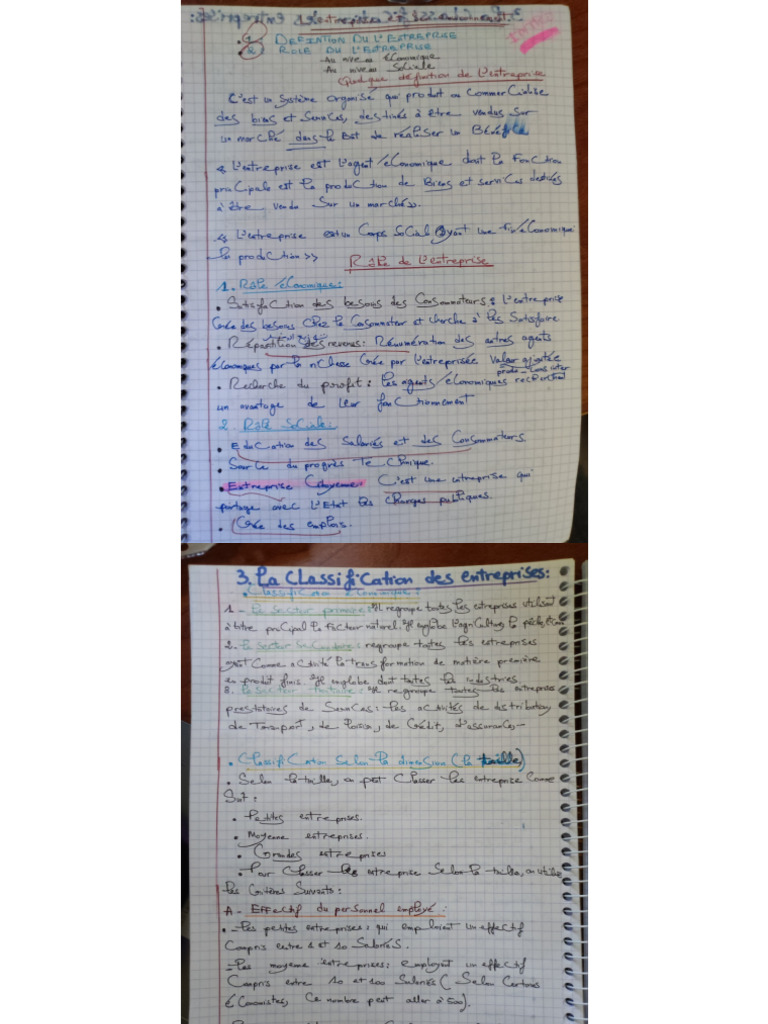 1. DEFINITION DU L'ENTREPRISE
2. ROLE DU L'ENTREPRISE
- Au niveau économique
- Au niveau Sociale
Quelque définition de l'entreprise
C'est un système organisé qui produit ou commercialise
des biens et services, destinés à être vendus sur
un marché dans le but de réaliser un Bénéfice
« L'entreprise est l'agent économique dont la fonction
principale est la production de Biens et services destinés
à être vendu sur un marché».
« L'entreprise est un Corps Social ayant une fin économique
la production »
Rôle de l'entreprise
1. Rôle économique:
• Satisfaction des besoins des Consommateurs : l'entreprise
Crée des besoins chez le Consommateur et cherche à les Satisfaire
• Répartition des revenus: Rémunération des autres agents
économiques par la richesse Crée par l'entreprise Valeur ajoutée
• Recherche du profit : les agents économiques recherchent
un avantage de leur fonctionnement
2. Rôle Sociale:
• Education des Salariés et des Consommateurs
• Source du progrès Technique.
• Entreprise Citoyenne: C'est une entreprise qui
partage avec l'Etat les charges publiques.
• Crée des emplois.
3. La Classification des entreprises:
• Classification économique :
1 - Le Secteur primaire: Il regroupe toutes les entreprises utilisant
à titre principal le facteur naturel. Il englobe l'agriculture, la pêche
2. Le secteur Secondaire : regroupe toutes les entreprises
ayant comme activité la transformation de matière première
en produit finis. Il englobe dont toutes les industries.
3. Le secteur tertiaire : Il regroupe toutes les entreprises
prestataires de Services : les activités de distribution,
de Transport, de loisir, de Crédit, d'assurances -
• Classification selon la dimension (la taille)
• Selon la taille, on peut Classer les entreprise Comme
Suit :
• Petites entreprises.
• Moyenne entreprises.
• Grandes entreprises
• Pour Classer les entreprise Selon la taille, on utilise
les Critères Suivants :
A - Effectif du personnel employé :
• les petites entreprises : qui emploient un effectif
Compris entre 1 et 10 Salariés.
- les moyenne entreprises : employant un effectif
Compris entre 10 et 100 Salariés (Selon Certains
économistes, Ce nombre peut aller à 500).